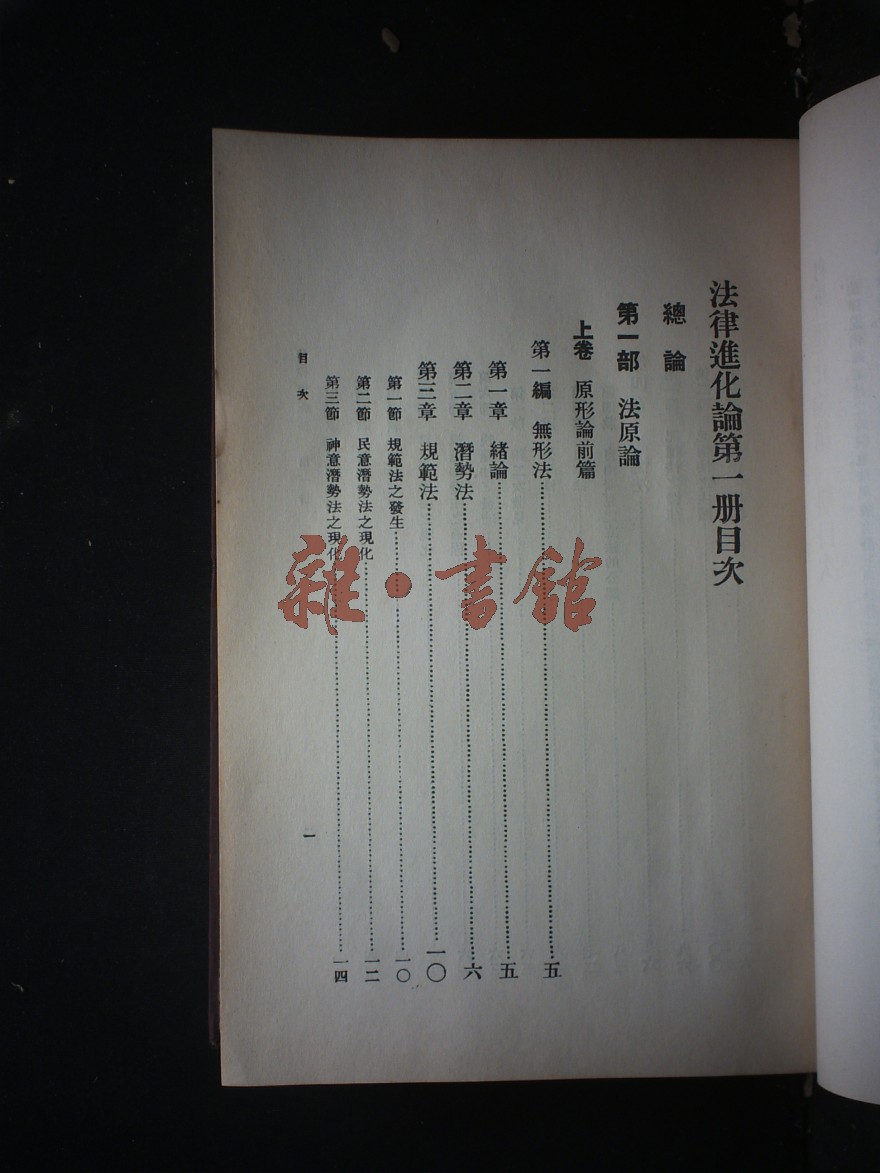 法律進化論第一册目次
總論
第一部 法原論
上卷 原形論前篇
第一編 無形法……五
第一章 緒論……五
第二章 潛勢法……六
第三章 規範法……一〇
第一節 規範法之發生……一〇
第二節 民意潛勢法之現化……一二
第三節 神意潛勢法之現化……一四
目次
一
雜·書館